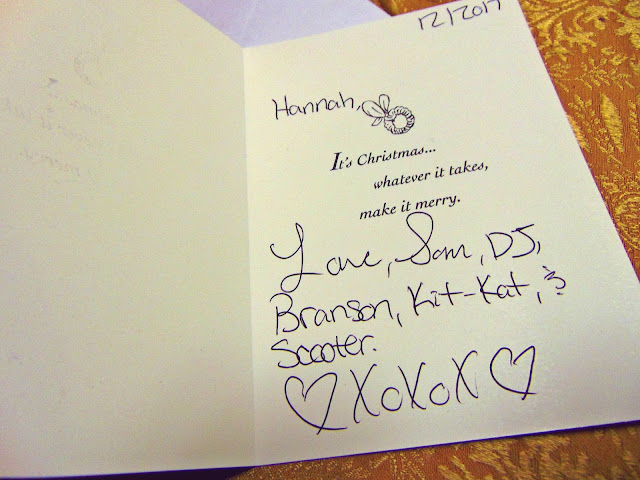 12/2017
Hannah,
It's Christmas...
whatever it takes,
make it merry.
Love, Sam, DJ,
Branson, Kit-Kat, &
Scooter.
♡ XoXoX ♡